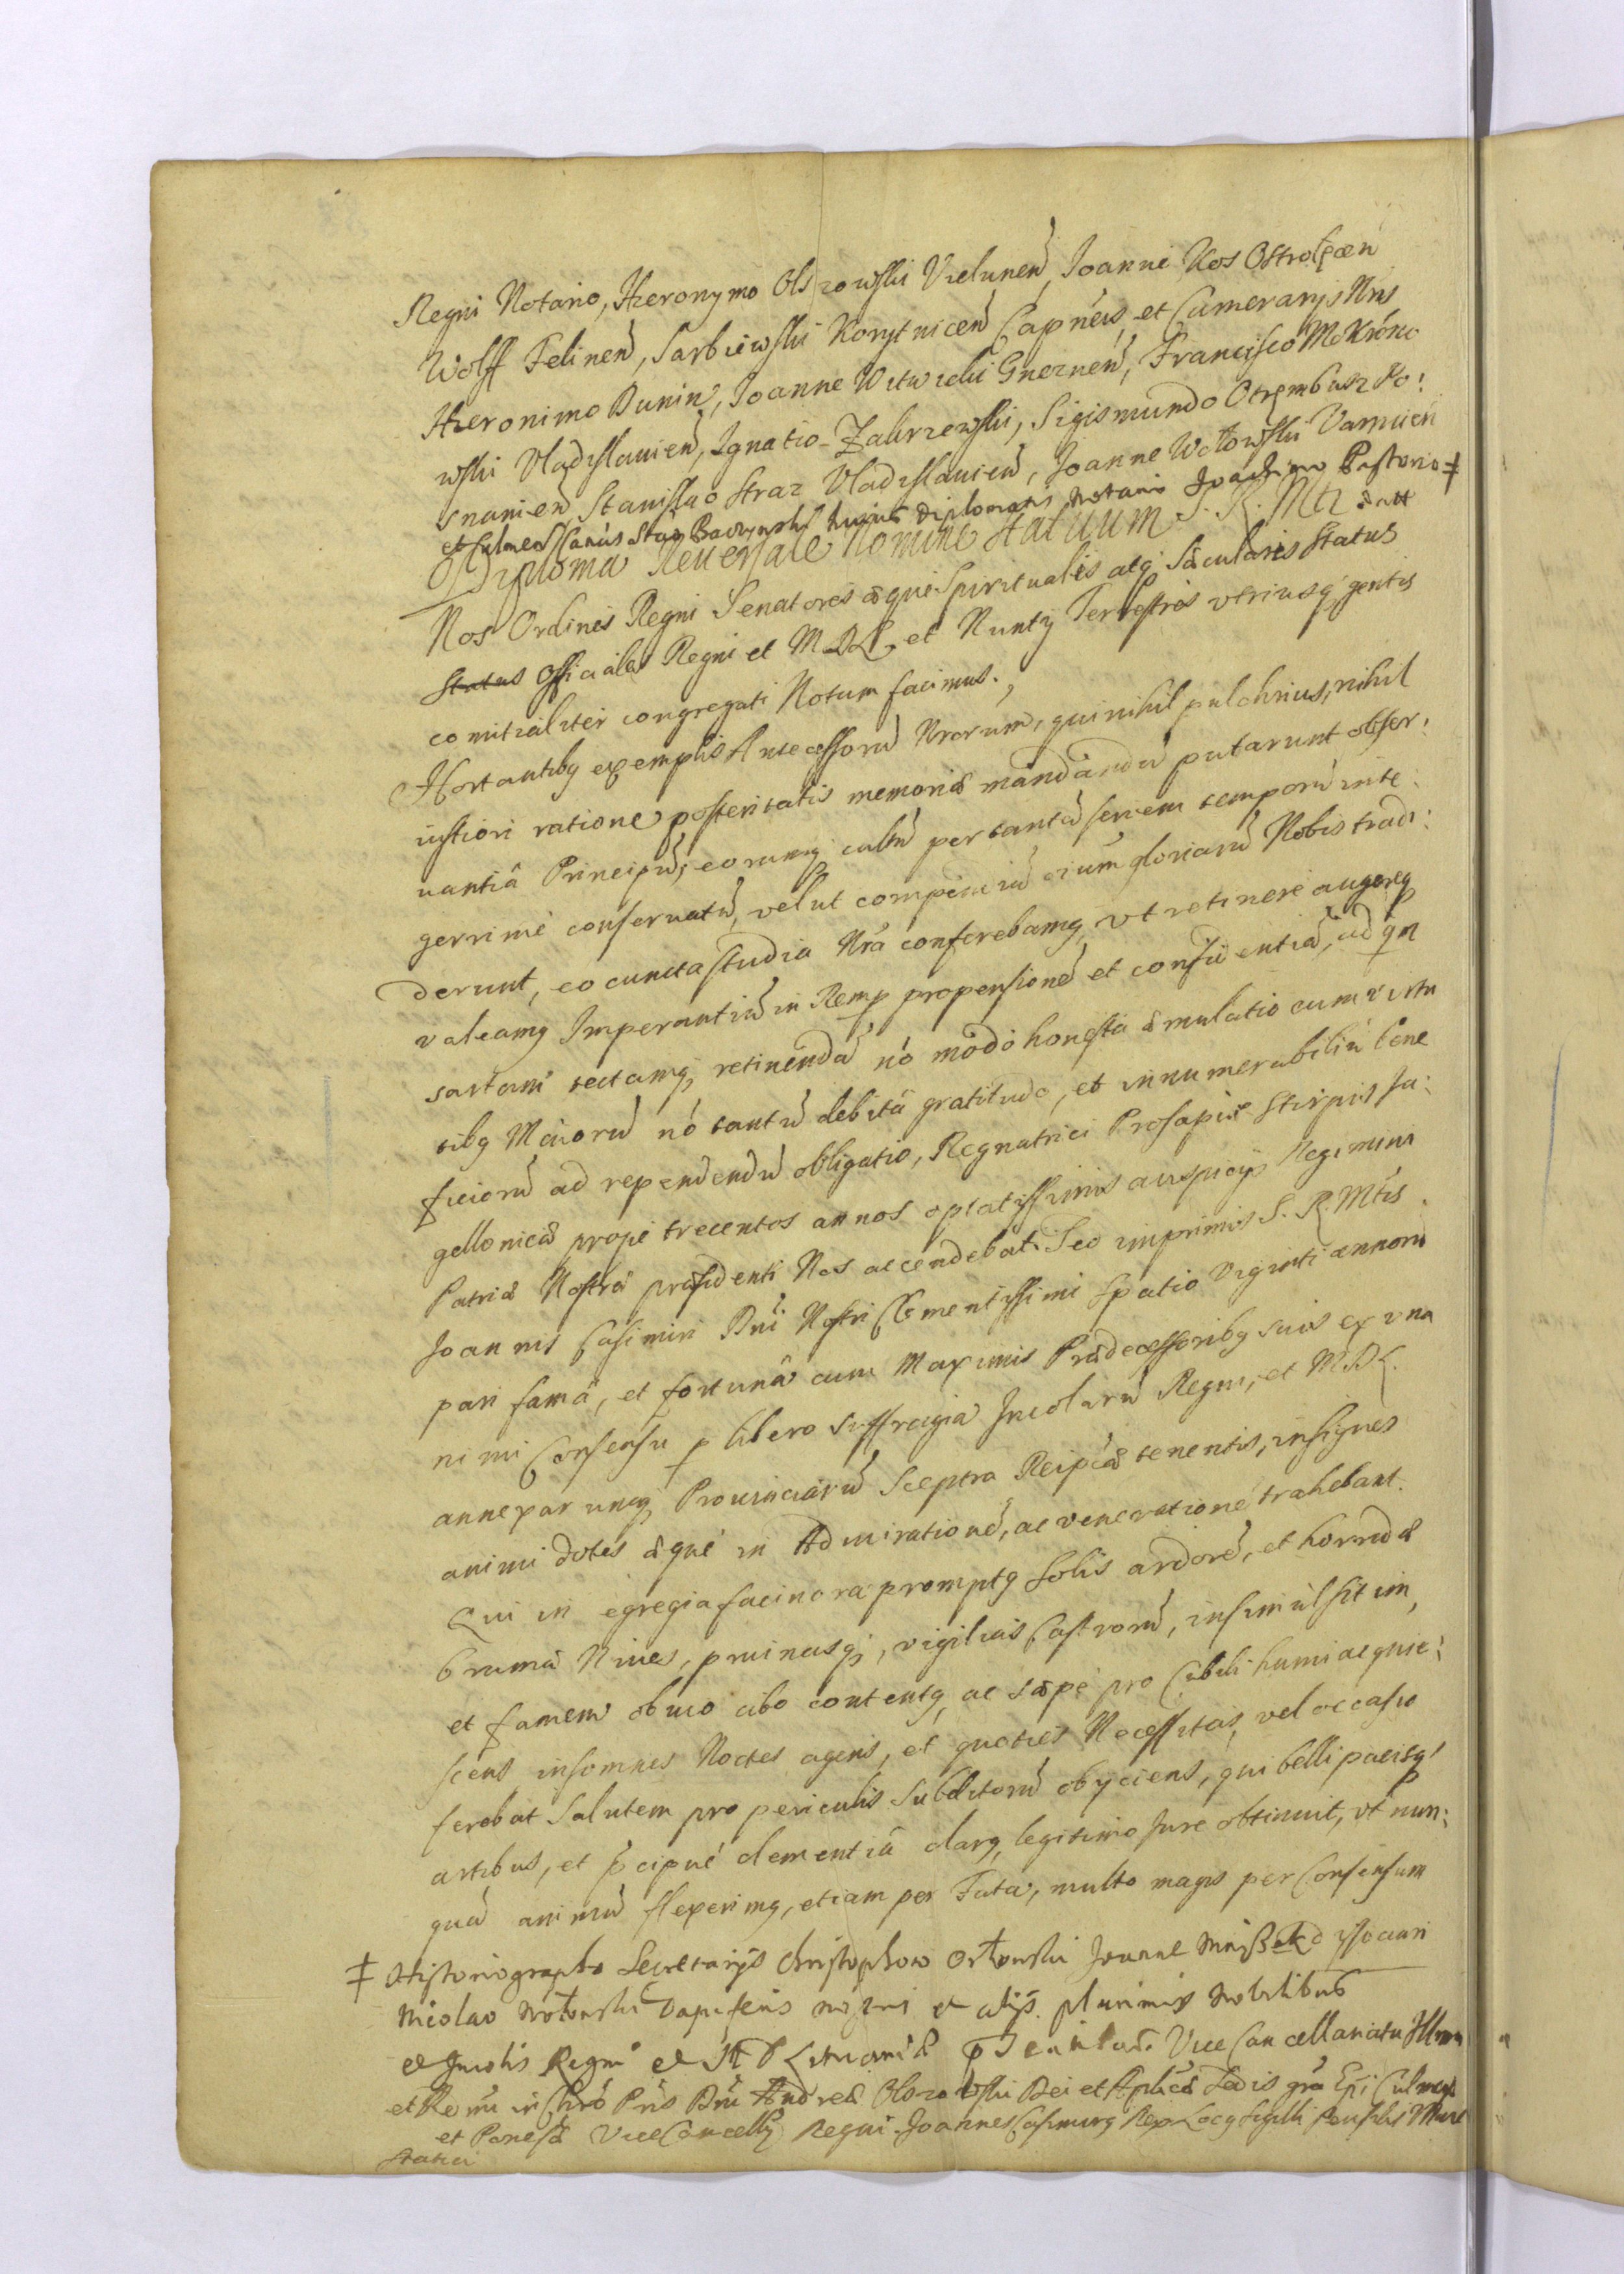 Regni Notario, Hieronymo Olszowski Vielunen, Joanne Kos Ostrolscen
Wolff Felinen, Sarbiewski Korytnicen Capneis, et Camerarijs Nris
Hieronimo Dunin, Joanne Witwicki Gneznen, Francisco Mokrono
wski Vladislauien, Ignatio Zakrzewski, Sigismundo Otrembusz Po:
snanien Stanislao Straz Vladislauien, Joanne Wołowski Varmien
et Culmen Canus huius Diplomatis Notario Joachimo Pastorio ‡
Diploma Reuersale Nomine Statuum S. R. Mti datt
Nos Ordines Regni Senatores æque Spiritualis atq Sæcularis Status
Status Officiales Regni et M.D.L. et Nuntij Terrestres vtriusq gentis
comitialiter congregati Notum facimus.
Hortantibq exemplis Antecessorũ Nrorum, qui nihil pulchrius, nihil
iustiori ratione posteritatis memoriæ mandandũ putarunt obser:
uantiâ Principũ, eorumq cultũ per tantã seriem temporũ inte:
gerrimè conseruatũ, velut compendiũ oium gloriarũ Nobis tradi:
derunt, eo cuncta studia Nra conferebamq, vt retinere augereq
valeamq Imperantiũ in Remp propensionẽ et confidentiã, ad qm
sartam tectamq, retinendã nõ modo honesta æmulatio cum virtu
tibq Maiorũ nõ tantũ debita gratitudo, et innumerabiliũ bene
ficiorũ ad rependendũ obligatio, Regnatrici Prosapiæ Stirpis Ja:
gellonicæ propè trecentos annos optatissimis auspicijs Regimini
Patriæ Nostræ præsidenti Nos accendebat. Sed imprimis S. R. Mtis
Joannis Casimiri Dni Nostri Clementissimi Spatio Viginti annorũ
pari famâ, et fortunâ cum Maximis Prædecessoribq suis ex vna
nimi Consensu p libero suffragia Incolarũ Regni, et M.D.L.
annexarumq Prouinciarũ Sceptra Reipcæ tenentis, insignes
animi dotes æquè in Admirationẽ, ac venerationẽ trahebant.
Qui in egregia facinora promptq Solis ardorẽ, et horrida
brumæ Niues, pruinasq, vigilias Castrorũ, insimul sitim,
et famem obuio cibo contentq, ac sæpè pro Cubili humi acquie:
scens insomnes Noctes agens, et quoties Necessitas, vel occasio
ferebat Salutem pro periculis Subditorũ obijciens, qui belli pacisq
artibus, et pcipuè clementiâ clarq, legitimo Jure obtinuit, vt nun:
quã animũ flexerimq, etiam per Fata, multo magis per Consensum
‡ Historiographo Secretarijs Christophoro Joanne
Nicolao Wołowski Dapiferis et alijs plurimis Nobilibus
et Incolis Regni et M D Lituaniæ Vice Cancellariatu Illmi
et Remi in Chro Pris Dni Andreæ Olszowski Dei et Aplicæ Sedis gra Epi Culmen
et Pomesa Vice Cancellij Regni. Joannes Casimirq Rex Locq Sigilli